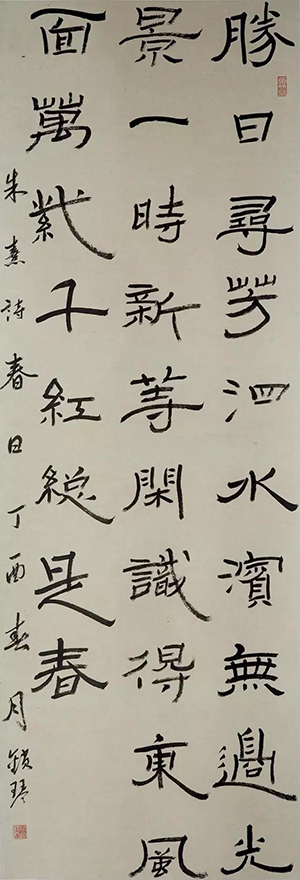 勝日尋芳泗水濱無邊光
景一時新等閑識得東風
面萬紫千紅總是春
朱熹詩春日丁酉春月琴